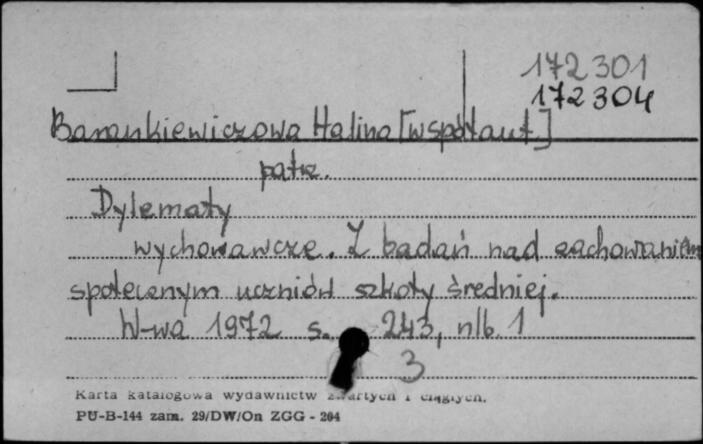 172 301
172 304
Barankiewiczowa Halina [współaut.]
patrz.
Dylematy
wychowawcze. Z badań nad zachowaniem
społecznym uczniów szkoły średniej.
W-wa 1972 s. 243, nlb. 1
3
Karta katalogowa wydawnictw zwartych i ciągłych.
PU-B-144 zam. 29/DW/On ZGG - 204